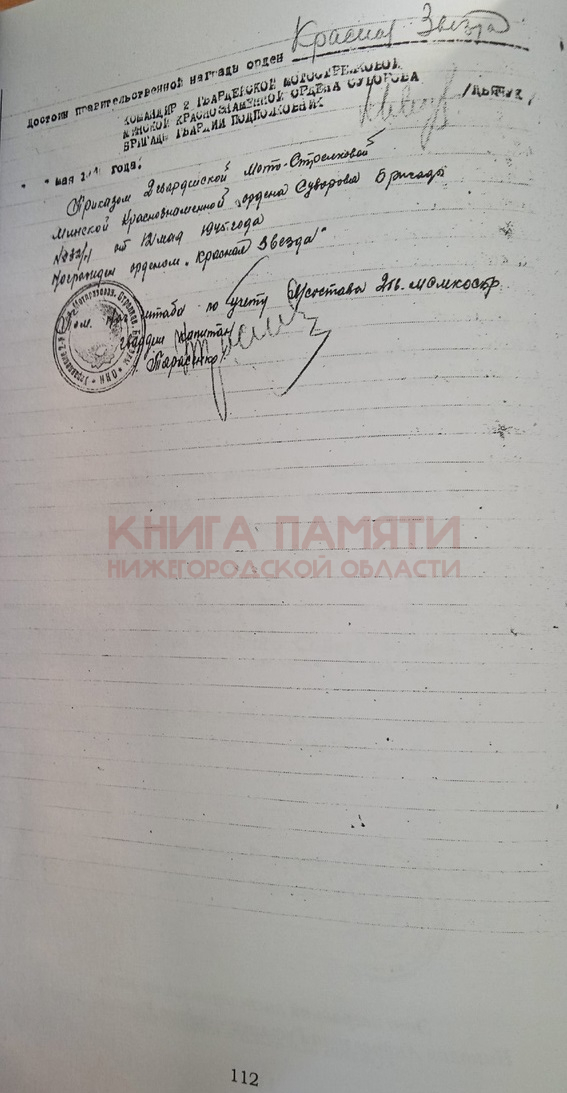 Достоин правительственной награды орден Красная Звезда
КОМАНДИР 2 ГВАРДЕЙСКОЙ МОТОСТРЕЛКОВОЙ
МИНСКОЙ КРАСНОЗНАМЕННОЙ ОРДЕНА СУВОРОВА
БРИГАДЫ ГВАРДИИ ПОДПОЛКОВНИК
" " мая года.
Приказом 2 гвардейской Мото-Стрелковой
Минской Краснознаменной ордена Суворова Бригады
от 12 мая 1945 года
награжден орденом „Красная Звезда"
Пом. Нач штаба по учету
гвардии Капитан
/Тарасенко/
КНИГА ПАМЯТИ
НИЖЕГОРОДСКОЙ ОБЛАСТИ
112